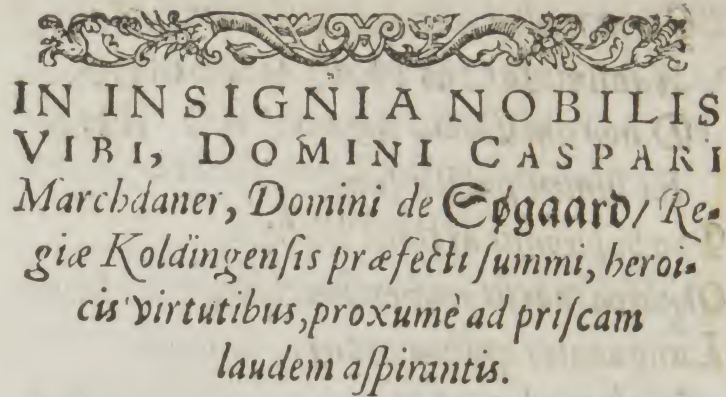 IN INSIGNIA NOBILIS
VIRI, DOMINI CASPARI
Marchdaner, Domini de Søgaard/ Re-
giæ Koldingensis præfecti ſummi, heroi-
cis virtutibus, proxumè ad priſcam
laudem aſpirantis.